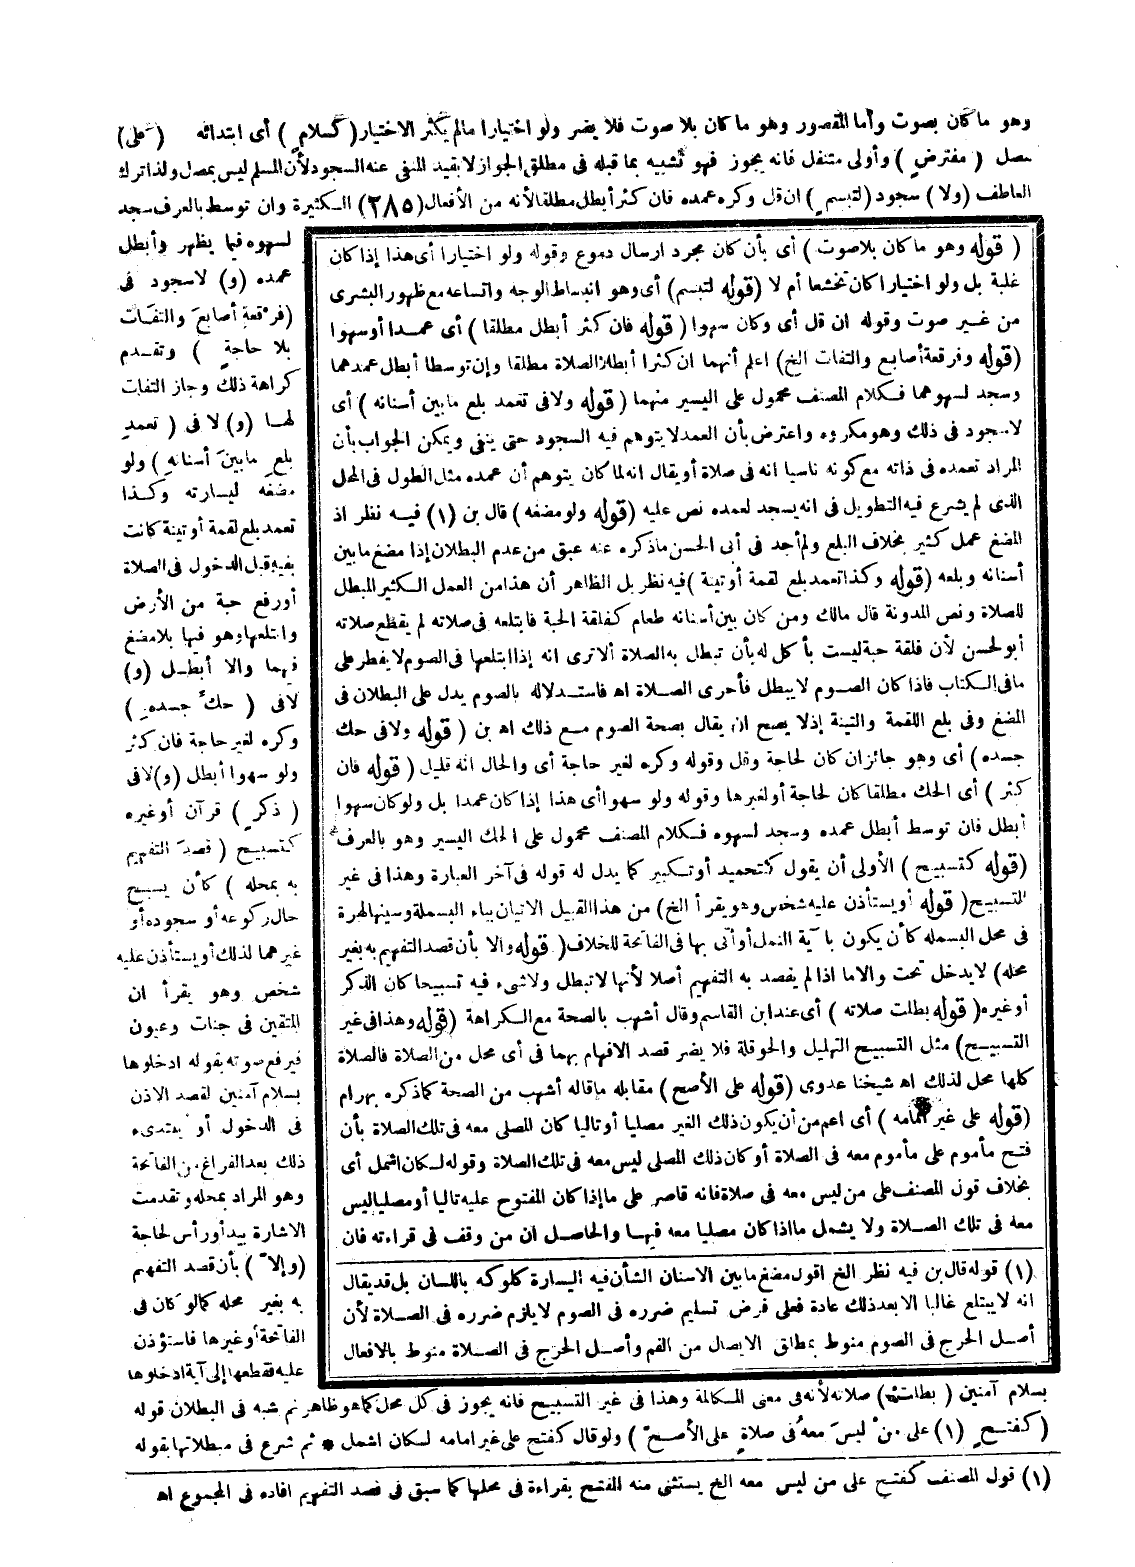 وهو ما كان بصوت وأما المقصور وهو ما كان بلا صوت فلا يضر ولو اختيارا مالم يكثر الاختيار (كسلام) أى ابتدائه (على)
مصل (مفترض) وأولى متنفل فانه يجوز فهو تشبيه بما قبله فى مطلق الجواز لا بقيد النفى عنه السجود لأن المسلم ليس بمصل ولذا ترك
العاطف (ولا) سجود (لتبسم) ان قل وكره عمده فان كثر أبطل مطلقا لأنه من الأفعال (٢٨٥) الكثيرة وان توسط بالعرف سجد
لسهوه فيما يظهر وأبطل
عمده (و) لا سجود فى
(فرقعة أصابعَ والتفَات
بلا حاجةٍ) وتقدم
كراهة ذلك وجاز التفات
لها (و) لا فى (تعمدِ
بلعِ مابينَ أسنانهِ) ولو
مضغه ليسارته وكذا
تعمد بلع لقمة أو تينة كانت
بفيه قبل الدخول فى الصلاة
أو رفع حبة من الأرض
وابتلعها وهو فيها بلا مضغ
فيهما والا أبطل (و)
لا فى (حكِّ جسدهِ)
وكره لغير حاجة فان كثر
ولو سهوا أبطل (و) لا فى
(ذكرٍ) قرآن أو غيره
كتسبيح (قصدَ التفهيم
به بمحله) كأن يسبح
حال ركوعه أو سجوده أو
غيرهما لذلك أو يستأذن عليه
شخص وهو يقرأ ان
المتقين فى جنات وعيون
فيرفع صوته بقوله ادخلوها
بسلام آمنين لقصد الاذن
فى الدخول أو يبتدىء
ذلك بعد الفراغ من الفاتحة
وهو المراد بمحله وتقدمت
الاشارة بيد أو رأس لحاجة
(وإلاّ) بأن قصد التفهيم
به بغير محله كما لو كان فى
الفاتحة أو غيرها فاستؤذن
عليه فقطعها إلى آية ادخلوها
(قوله وهو ما كان بلاصوت) أى بأن كان مجرد ارسال دموع وقوله ولو اختيارا أى هذا إذا كان
غلبة بل ولو اختيارا كان تخشعا أم لا (قوله لتبسم) أى وهو انبساط الوجه واتساعه مع ظهور البشرى
من غير صوت وقوله ان قل أى وكان سهوا (قوله فان كثر أبطل مطلقا) أى عمدا أو سهوا
(قوله وفرقعة أصابع والتفات الخ) اعلم أنهما ان كثرا أبطلا الصلاة مطلقا وإن توسطا أبطل عمدهما
وسجد لسهوهما فكلام المصنف محمول على اليسير منهما (قوله ولافى تعمد بلع مابين أسنانه) أى
لاسجود فى ذلك وهو مكروه واعترض بأن العمد لا يتوهم فيه السجود حتى ينفى ويمكن الجواب بأن
المراد تعمده فى ذاته مع كونه ناسيا انه فى صلاة أو يقال انه لما كان يتوهم أن عمده مثل الطول فى المحل
الذى لم يشرع فيه التطويل فى انه يسجد لعمده نص عليه (قوله ولو مضغه) قال بن (١) فيه نظر اذ
المضغ عمل كثير بخلاف البلع ولم أجد فى أبى الحسن ماذكره عنه عبق من عدم البطلان إذا مضغ مابين
أسنانه وبلعه (قوله وكذا تعمد بلع لقمة أوتينة) فيه نظر بل الظاهر أن هذا من العمل الكثير المبطل
للصلاة ونص المدونة قال مالك ومن كان بين أسنانه طعام كفلقة الحبة فابتلعه فى صلاته لم يقطع صلاته
أبو لحسن لأن فلقة حبة ليست بأكل له بأن تبطل به الصلاة ألا ترى انه إذا ابتلعها فى الصوم لا يفطر على
مافى الكتاب فاذا كان الصوم لا يبطل فأحرى الصلاة اه فاستدلاله بالصوم يدل على البطلان فى
المضغ وفى بلع اللقمة والتينة إذلا يصح ان يقال بصحة الصوم مع ذلك اه بن (قوله ولافى حك
جسده) أى وهو جائز ان كان لحاجة وقل وقوله وكره لغير حاجة أى والحال انه قليل (قوله فان
كثر) أى الحك مطلقا كان لحاجة أو لغيرها وقوله ولو سهوا أى هذا إذا كان عمدا بل ولو كان سهوا
أبطل فان توسط أبطل عمده وسجد لسهوه فكلام المصنف محمول على الحك اليسير وهو بالعرف
(قوله كتسبيح) الأولى أن يقول كتحميد أوتكبير كما يدل له قوله فى آخر العبارة وهذا فى غير
التسبيح (قوله أو يستأذن عليه شخص وهو يقرأ الخ) من هذا القبيل الاتيان بباء البسملة وسينها لهرة
فى محل البسمله كأن يكون بآية النمل أو أتى بها فى الفاتحة للخلاف (قوله والا بأن قصد التفهيم به بغير
محله) لايدخل تحت والاما اذا لم يقصد به التفهيم أصلا لأنها لا تبطل ولاشىء فيه تسبيحا كان الذكر
أو غيره (قوله بطلت صلاته) أى عند ابن القاسم وقال أشهب بالصحة مع الكراهة (قوله وهذا فى غير
التسبيح) مثل التسبيح التهليل والحوقلة فلا يضر قصد الافهام بهما فى أى محل من الصلاة فالصلاة
كلها محل لذلك اه شيخنا عدوى (قوله على الأصح) مقابله ماقاله أشهب من الصحة كماذكره بهرام
(قوله على غير امامه) أى اعم من أن يكون ذلك الغير مصليا أو تاليا كان المصلى معه فى تلك الصلاة بأن
فتح مأموم على مأموم معه فى الصلاة أو كان ذلك المصلى ليس معه فى تلك الصلاة وقوله لكان اشمل أى
بخلاف قول المصنف على من ليس معه فى صلاة فانه قاصر على ما إذا كان المفتوح عليه تاليا أو مصليا ليس
معه فى تلك الصلاة ولا يشمل ما اذا كان مصليا معه فيها والحاصل ان من وقف فى قراءته فان
(١) قوله قال بن فيه نظر الخ اقول مضغ مابين الاسنان الشأن فيه اليسارة كلوكه باللسان بل قديقال
انه لايبتلع غالبا الا بعد ذلك عادة فعلى فرض تسليم ضرره فى الصوم لا يلزم ضرره فى الصلاة لأن
أصل الحرج فى الصوم منوط بمطلق الايصال من الفم وأصل الحرج فى الصلاة منوط بالافعال
بسلام آمنين (بطلت) صلاته لأنه فى معنى المكالمة وهذا فى غير التسبيح فانه يجوز فى كل محل كما هو ظاهر ثم شبه فى البطلان قوله
(كفتحٍ (١) على منْ ليسَ معهُ فى صلاةٍ على الأصحّ) ولو قال كفتح على غير امامه لكان اشمل * ثم شرع فى مبطلاتها بقوله
(١) قول المصنف كفتح على من ليس معه الخ يستثنى منه الفتح بقراءة فى محلها كما سبق فى قصد التفهيم افاده فى المجموع اه